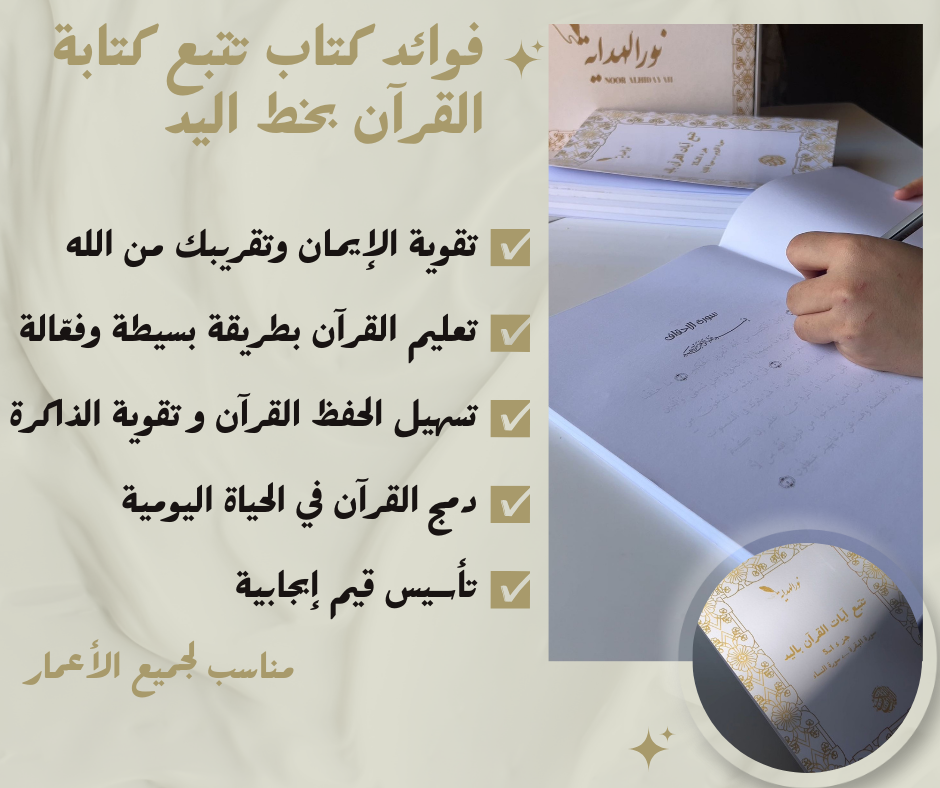 فوائد كتاب تتبع كتابة
القرآن بخط اليد
تقوية الإيمان وتقريبك من الله
تعليم القرآن بطريقة بسيطة وفعّالة
تسهيل الحفظ القرآن و تقوية الذاكرة
دمج القرآن في الحياة اليومية
تأسيس قيم إيجابية
مناسب لجميع الأعمار
نور الهداية
NOOR ALHIDAYAH
تتبع آيات القرآن باليد
سورة الأحقاف
نور الهداية
تتبع آيات القرآن باليد